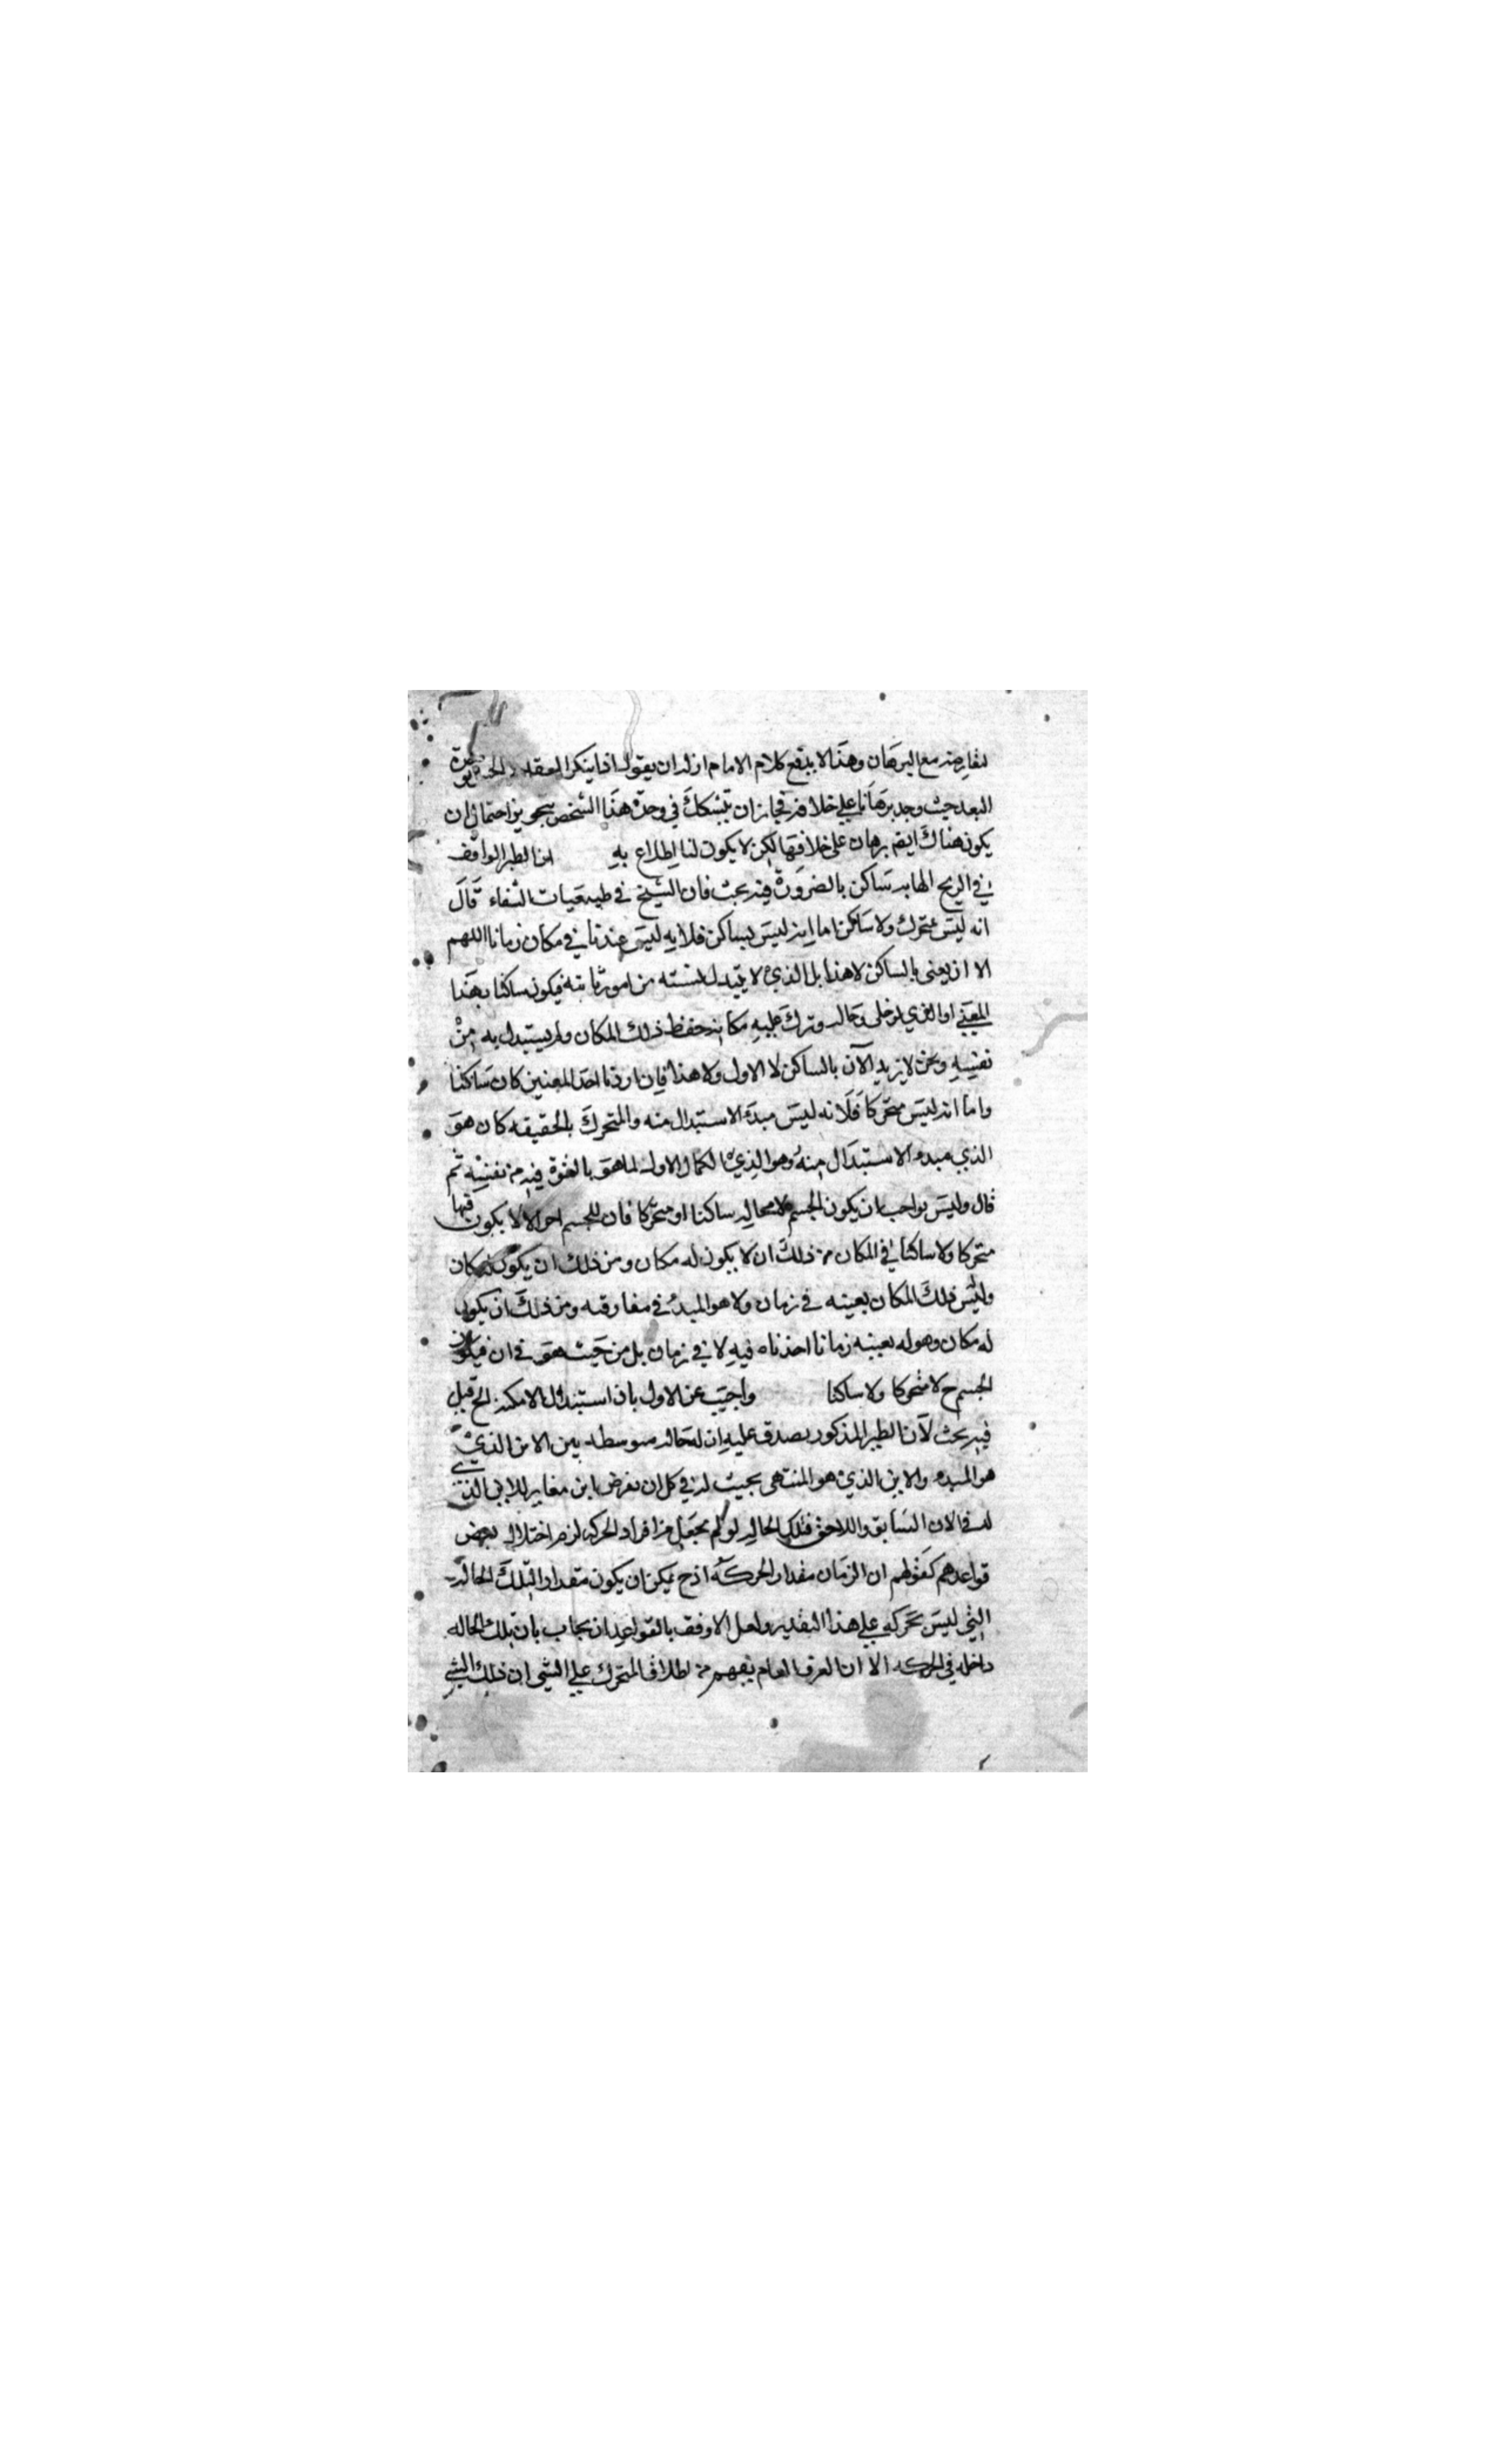 لتعارضه مع البرهان وهذا لا يدفع كلام الامام اذ له ان يقول اذا ينكر العقلاء
البعد حيث وجد برهانا على خلافه فجاز ان يتشكك في وحدة هذا الشخص بتجويز احتمال ان
يكون هناك ايضم برهان على خلافها لكن لا يكون لنا اطلاع به ان الطير الواقف
في الريح الهابه ساكن بالضرورة فيه بحث فان الشيخ في طبيعيات الشفاء قال
انه ليس بمتحرك ولا ساكن اما انه ليس بساكن فلانه ليس عندنا في مكان زمانا اللهم
الا ان يعنى بالساكن لا هذا بل الذي لا يتبدل نسبته من امور ثابته فيكون ساكنا بهذا
المعني او الذي لو خلي وحاله وترك عليه مكانه حفظ ذلك المكان ولم يستبدل به من
نفسه ونحن لا نريد الآن بالساكن لا الاول ولا هذا فان اردنا احد المعنيين كان ساكنا
واما انه ليس متحركا فلانه ليس مبدء الاستبدال منه والمتحرك بالحقيقه كان هو
الذي مبدء الاستبدال منه وهو الذي الكمال الاول لما هو بالقوة فيه من نفسه ثم
قال وليس بواجب ان يكون الجسم لا محاله ساكنا او متحركا فان للجسم احوالا لا يكون فيها
متحركا ولا ساكنا في المكان من ذلك ان لا يكون له مكان ومن ذلك ان يكون له مكان
وليس ذلك المكان بعينه في زمان ولا هو المبدء في مفارقته ومن ذلك ان يكون
له مكان وهو له بعينه زمانا اخذناه فيه لا في زمان بل من حيث هو في ان فيكون
الجسم ح لا متحركا ولا ساكنا واجيب عن الاول بان استبدال الامكنه الخ قيل
فيه بحث لان الطير المذكور يصدق عليه ان له حاله متوسطه بين الاين الذي
هو المبدء والاين الذي هو المنتهى بحيث له في كل ان نفرض اين مغاير للاين الذي
له في الان السابق واللاحق فتلك الحاله لو لم يجعل من افراد الحركه لزم اختلال بعض
قواعدهم كقولهم ان الزمان مقدار الحركة اذ ح يمكن ان يكون مقدارا لتلك الحاله
التي ليس بحركه على هذا التقدير ولعل الاوفق بالقواعد ان يجاب بان تلك الحاله
داخله في الحركه الا ان العرف العام يفهم من اطلاق المتحرك على الشي ان ذلك الشي